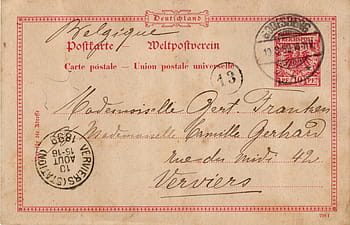 Deutschland
Belgique
Postkarte Weltpostverein
Carte postale — Union postale universelle
13
REICHSPOST
Mademoiselle Bert. Franken
Mademoiselle Camille Gerhard
rue du midi 42
Verviers
VERVIERS (STATION)
10
AOUT
15-16
1898